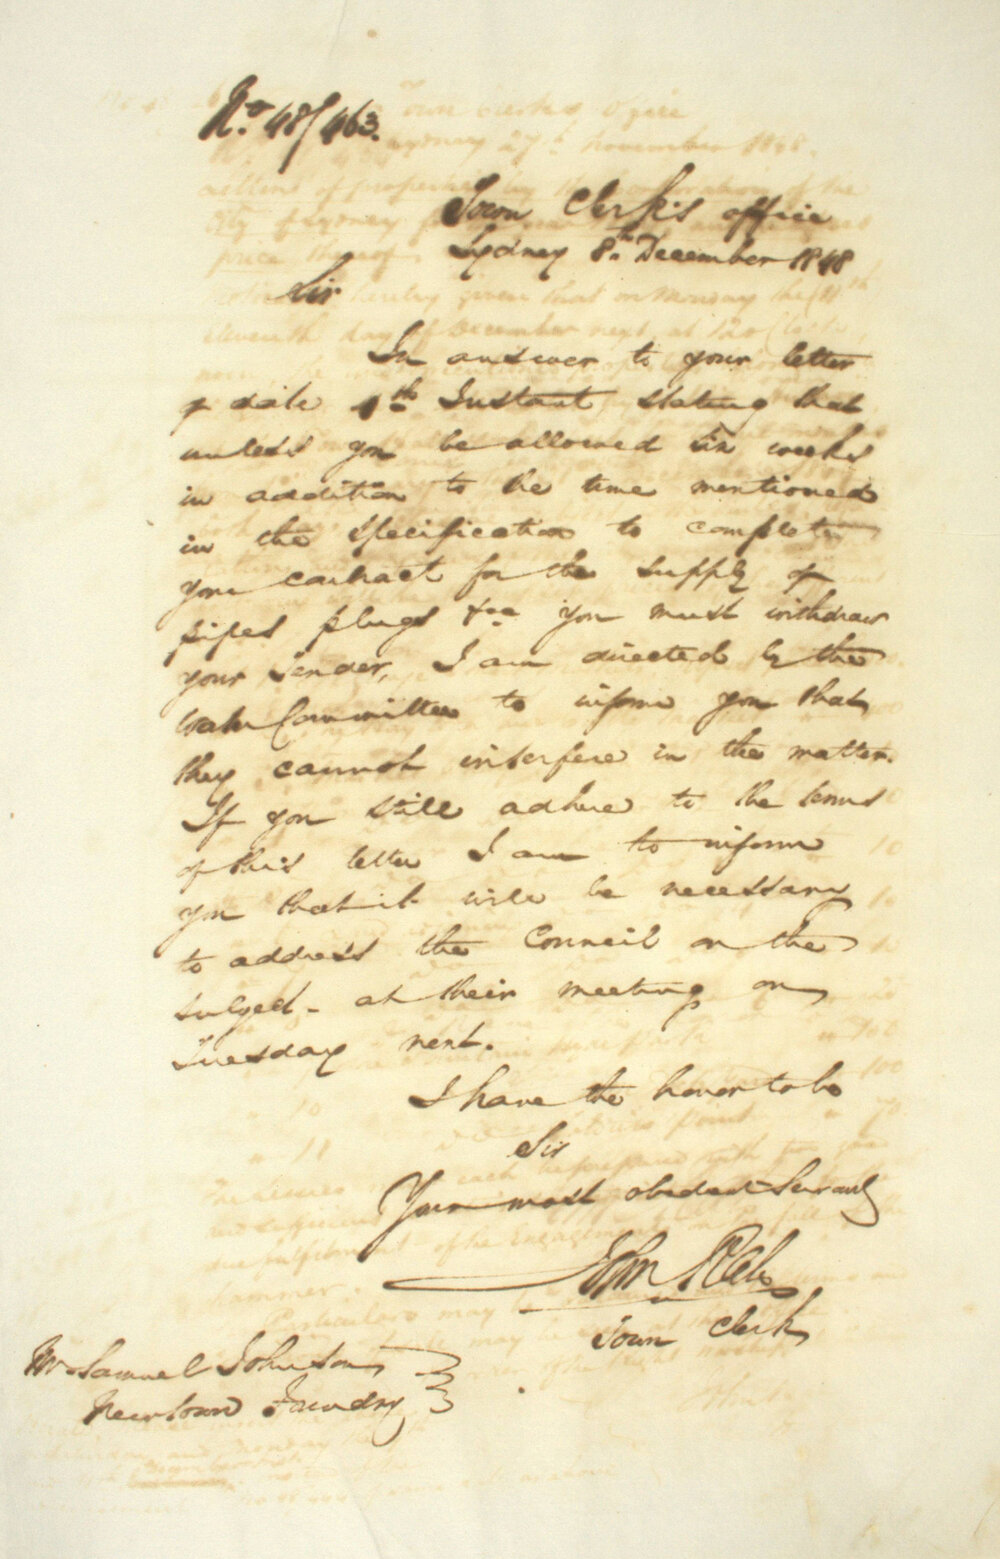 No. 48/463.
Town Clerk's office
Sydney 8th December 1848
Sir
In answer to your letter
of date 4th Instant, stating that
unless you be allowed six weeks
in addition to the time mentioned
in the specification to complete
your contract for the supply of
pipes plugs &ca you must withdraw
your tender, I am directed by the
Water Committee to inform you that
they cannot interfere in the matter.
If you still adhere to the terms
of this letter I am to inform
you that it will be necessary
to address the Council on the
subject - at their meeting on
Tuesday next.
I have the honor to be
Sir
Your most obedient Servant
John
Town Clerk
Mr Samuel Johnston
Newtown Foundry